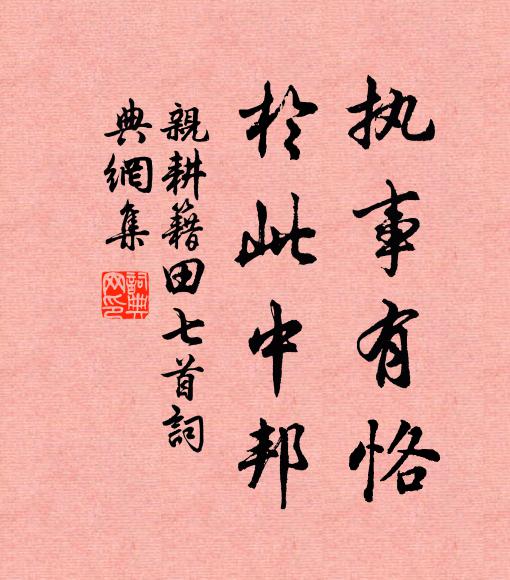 执事有恪
於此中邦
親耕籍田七首詞
典網集
詞典
网印